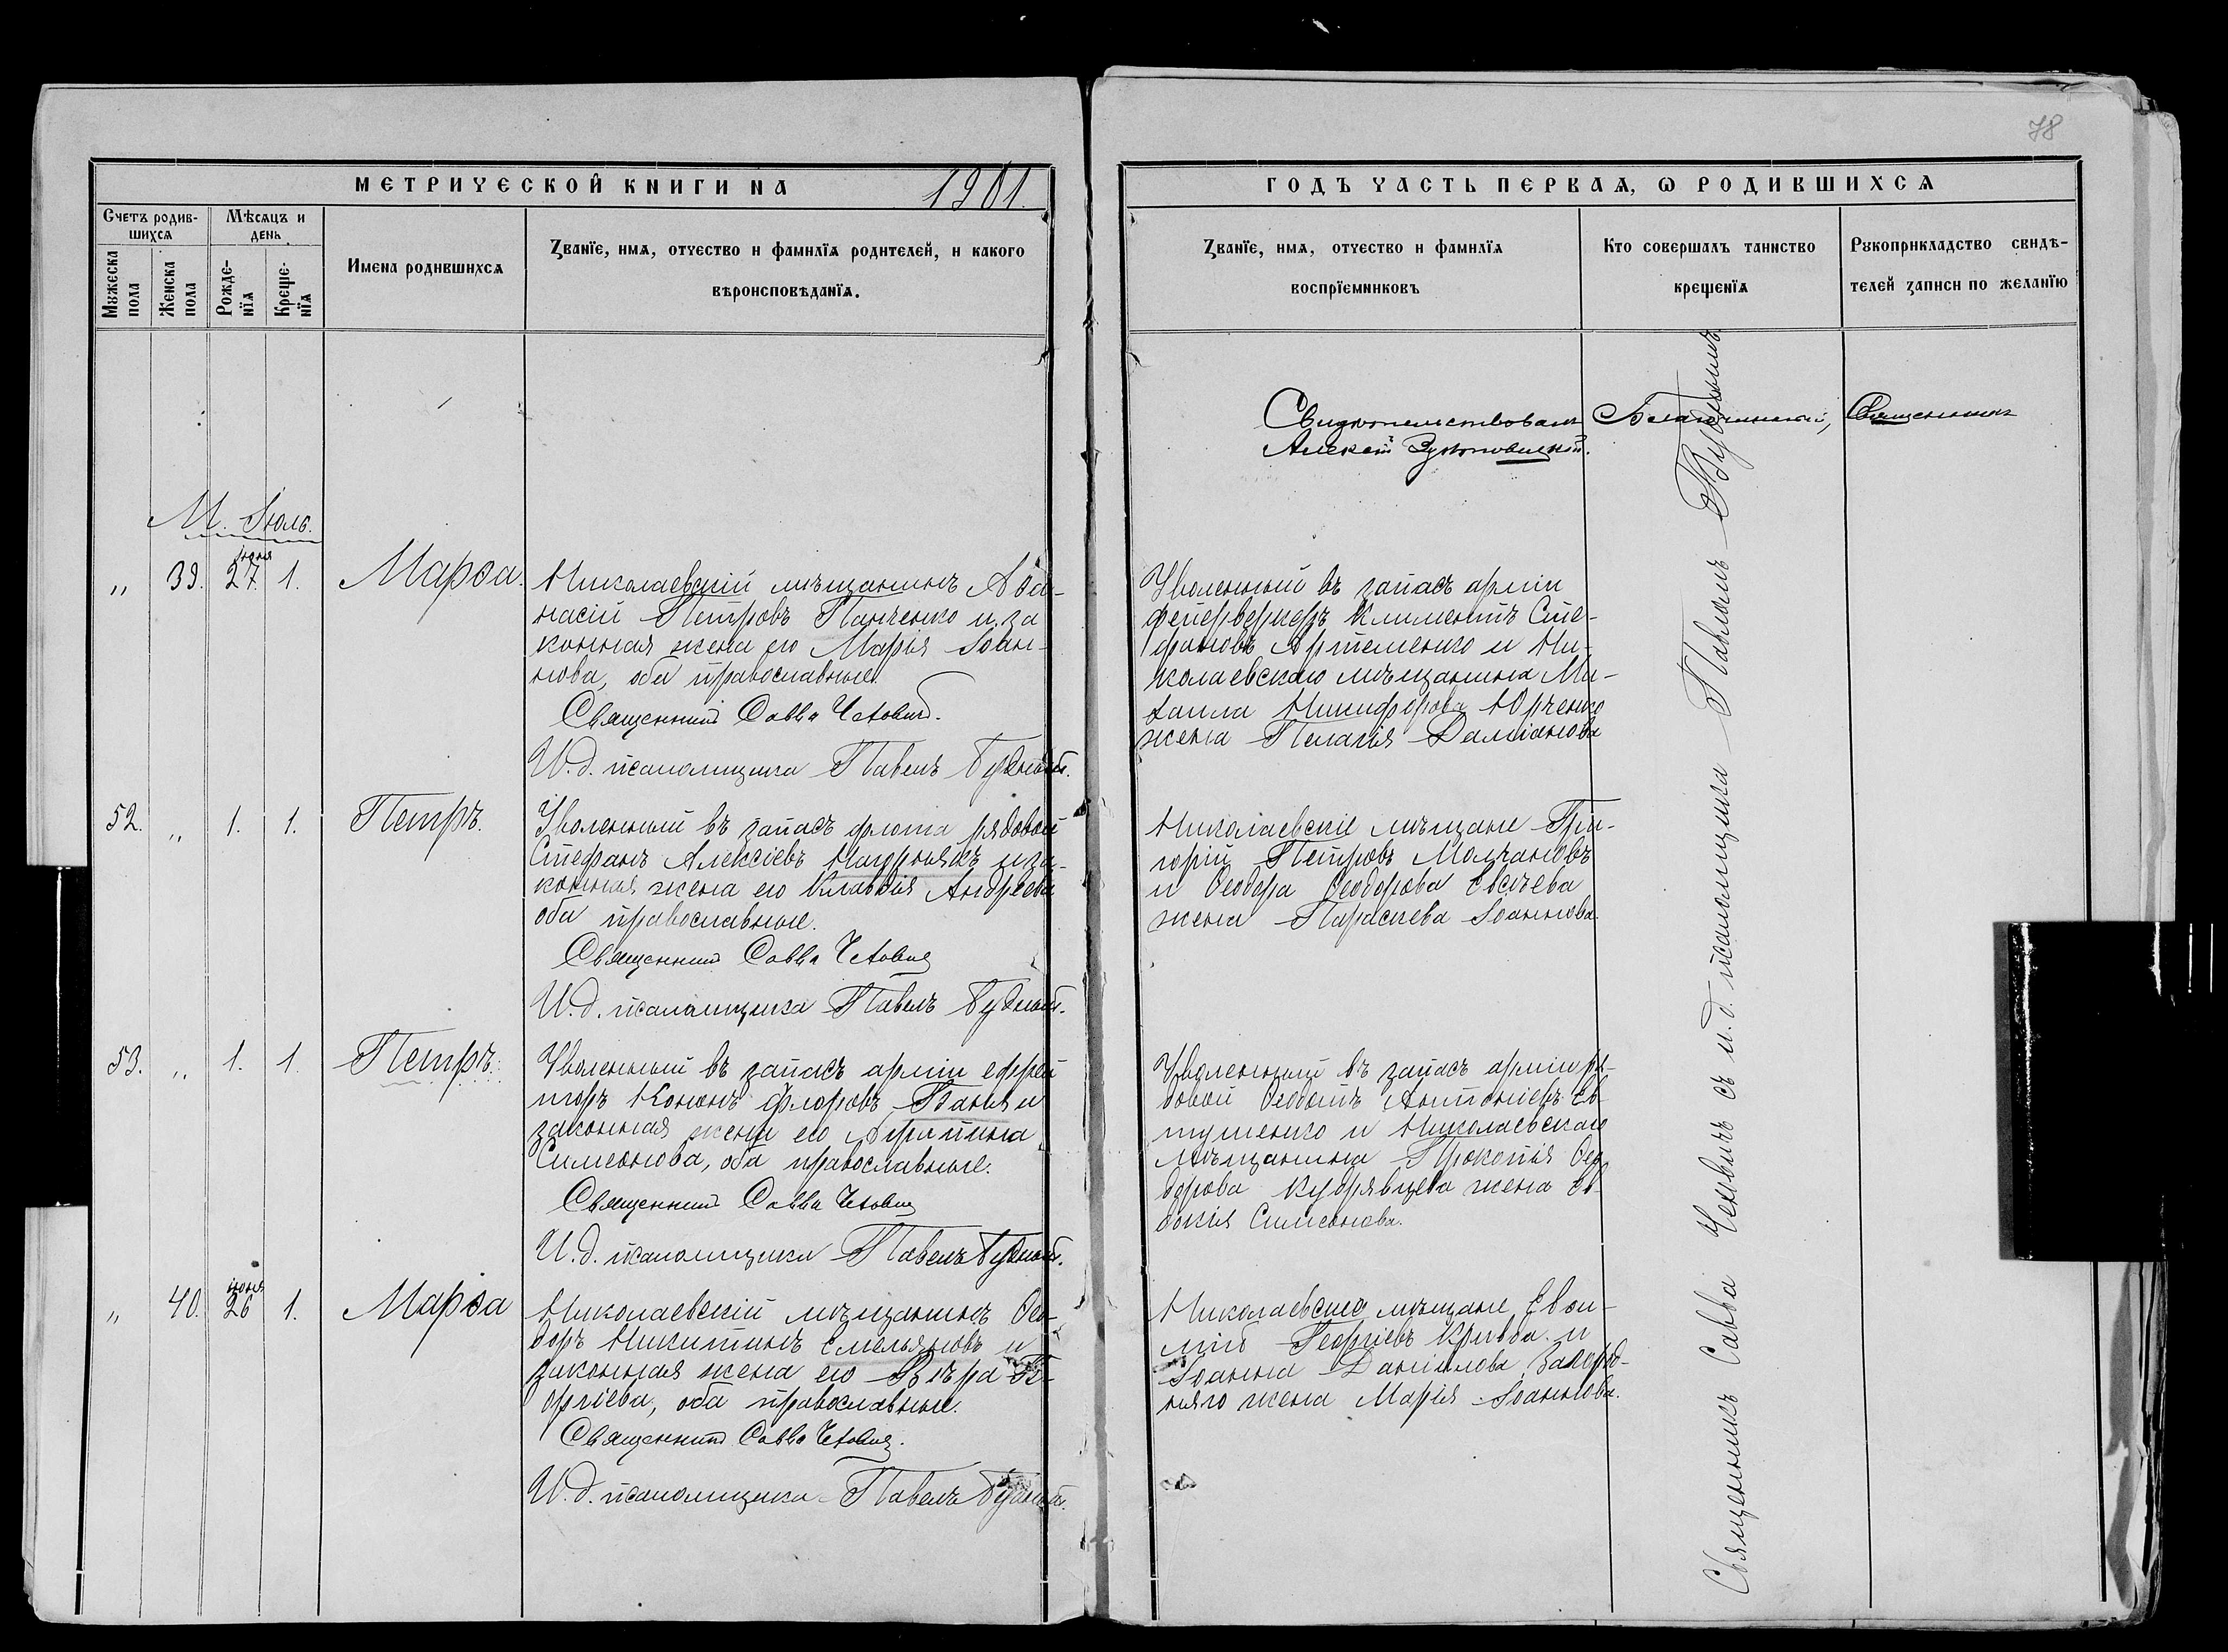 78
МЕТРИЧЕСКОЙ КНИГИ НА 1901.
ГОДЪ ЧАСТЬ ПЕРВАЯ, Ѡ РОДИВШИХСЯ
Счетъ родив-
шихся
Мѣсяцъ и
день
Мужеска
пола
Женска
пола
Рожде-
нїя
Креще-
нїя
Имена родившихся
Званїе, имя, отчество и фамилїя родителей, и какого
вѣроисповѣданїя.
Званїе, имя, отчество и фамилїя
воспрїемниковъ
Кто совершалъ таинство
крещенїя
Рукоприкладство свидѣ-
телей записи по желанїю
Свидѣтельствовалъ Благочинный, Священникъ
Алексѣй
М. Іюль.
„ 39. іюня 27. 1. Марѳа.
Николаевскій мѣщанинъ Аѳа-
насій Петровъ Панченко и за
конная жена его Марія Іоан-
нова, оба православные.
Священникъ Савва Чехович.
И.д. псаломщика Павелъ Будный.
Уволенный въ запасъ арміи
фейерверкеръ Климентъ Сте-
фановъ Артеменко и Ни-
колаевскаго мѣщанина Ми-
хаила Никифорова Юрченко
жена Пелагія Даміанова
52. „ 1. 1. Петръ.
Уволенный въ запасъ флота рядовой
Стефанъ Алексіевъ Нагорнякъ и за-
конная жена его Клавдія Андреева
оба православные.
Священникъ Савва Чехович
И.д. псаломщика Павелъ Будный.
Николаевскіе мѣщане Гри-
горій Петровъ Молчановъ
и Ѳеодора Ѳеодорова Евсѣева
жена Параскева Іоаннова.
53. „ 1. 1 Петръ.
Уволенный въ запасъ арміи ефрей
торъ Кононъ Флоровъ и
законная жена его Агрипина
Симеонова, оба православные.
Священникъ Савва Чехович
И.д. псаломщика Павелъ Будный.
Уволенный въ запасъ арміи ря-
довой Ѳеодотъ Антоніевъ Ев-
тушенко и Николаевскаго
мѣщанина Прокопія Ѳео
дорова Кудрявцева жена Ев-
докія Симеонова.
„ 40. іюня 26 1. Марѳа
Николаевскій мѣщанинъ Ѳео-
доръ Никитинъ Емельяновъ и
законная жена его Вѣра Ге-
оргіева, оба православные.
Священникъ Савва Чехович.
И.д. псаломщика Павелъ Будный.
Николаевскіе мѣщане Евѳи-
мій Георгіевъ Кривда и
Іоанна Даніилова Загород-
няго жена Марія Іоаннова.
Священникъ Савва Чеховичъ съ и.д. псаломщика Павломъ Буднымъ